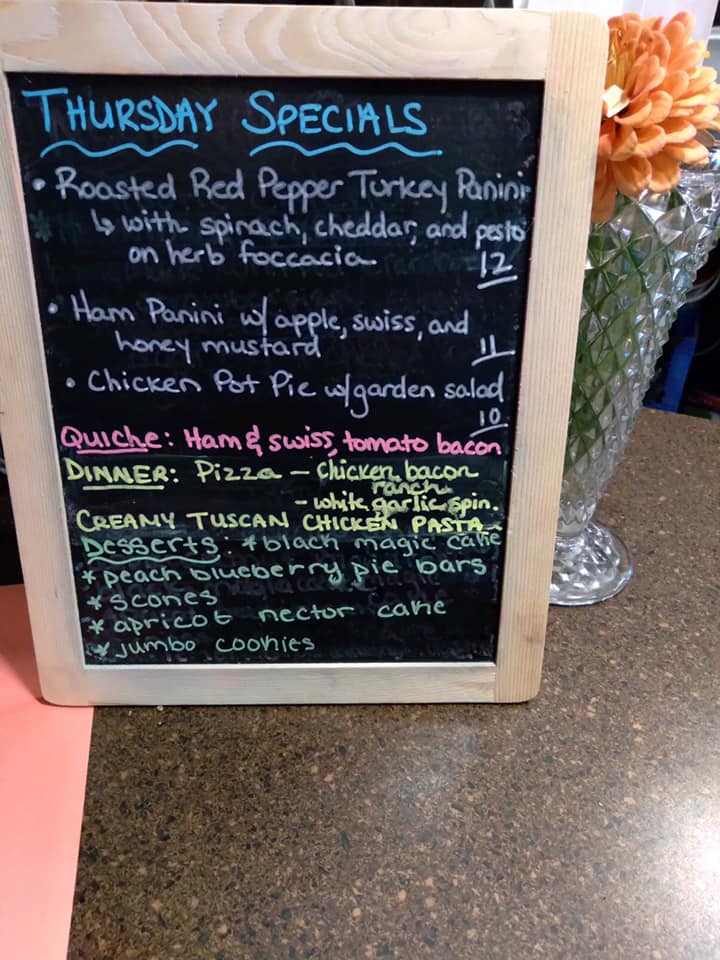 THURSDAY SPECIALS
• Roasted Red Pepper Turkey Panini
↳ with spinach, cheddar, and pesto
on herb foccacia
12
• Ham Panini w/ apple, swiss, and
honey mustard
11
• Chicken Pot Pie w/garden salad
10
QUICHE: Ham & swiss, tomato bacon
DINNER: Pizza - chicken bacon
ranch
- white garlic spin.
CREAMY TUSCAN CHICKEN PASTA
Desserts: *black magic cake
*peach blueberry pie bars
*scones
*apricot nector cake
*jumbo cookies